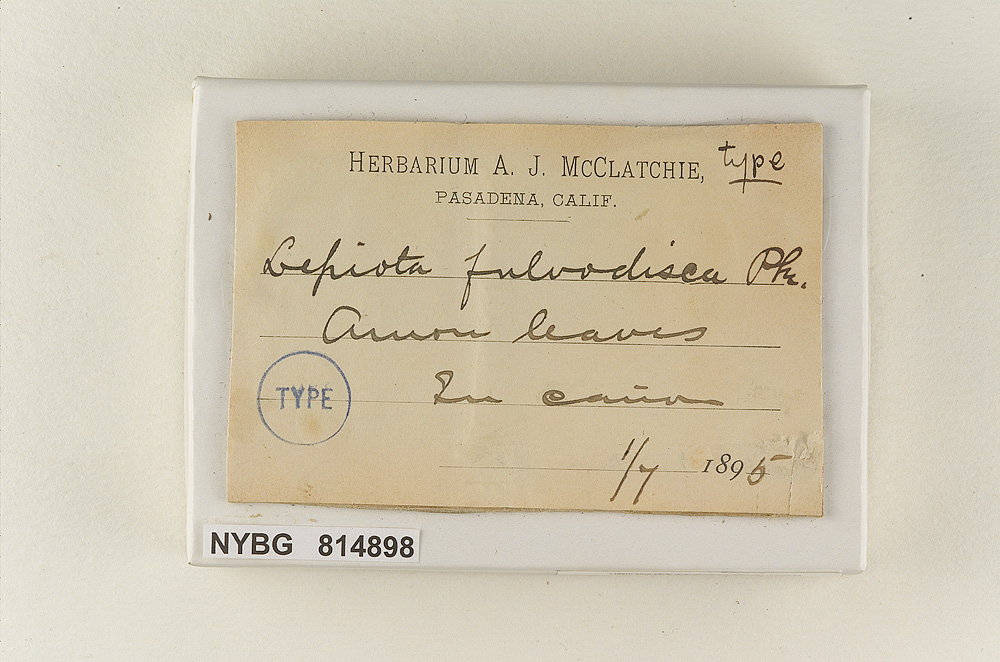 HERBARIUM A. J. MCCLATCHIE,
type
PASADENA, CALIF.
Lepiota fulvodisca Pk.
Amon leaves
In cañon
TYPE
1/7 1895
NYBG 814898